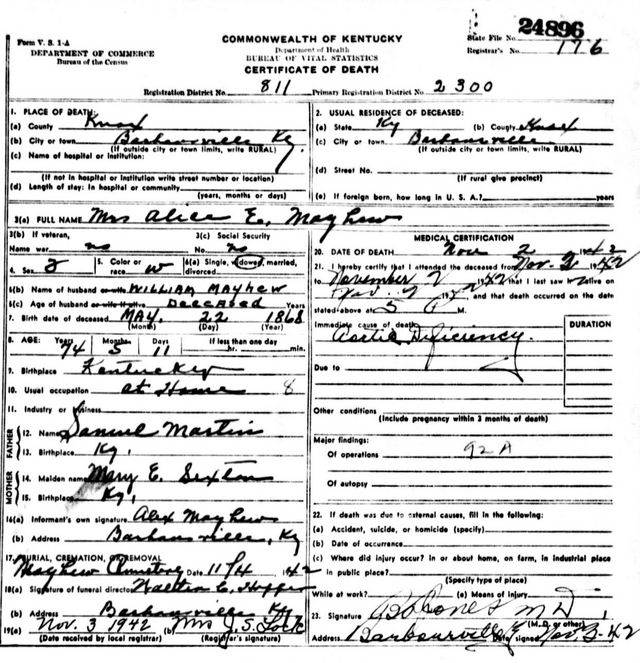 Form V. S. 1-A
DEPARTMENT OF COMMERCE
Bureau of the Census
COMMONWEALTH OF KENTUCKY
Department of Health
BUREAU OF VITAL STATISTICS
CERTIFICATE OF DEATH
24896
State File No.
Registrar's No. 176
Registration District No. 811 Primary Registration District No. 2300
1. PLACE OF DEATH:
(a) County Knox
(b) City or town Barbourville Ky.
(If outside city or town limits, write RURAL)
(c) Name of hospital or institution:
(If not in hospital or institution write street number or location)
(d) Length of stay: In hospital or community
(years, months or days)
2. USUAL RESIDENCE OF DECEASED:
(a) State Ky (b) County Knox
(c) City or town Barbourville
(If outside city or town limits, write RURAL)
(d) Street No.
(If rural give precinct)
(e) If foreign born, how long in U. S. A.? years
3(a) FULL NAME Mrs Alice E. Mayhew
3(b) If veteran,
Name war no
3(c) Social Security
No. no
4. Sex
5. Color or
race w
6(a) Single, widowed, married,
divorced
6(b) Name of husband or wife WILLIAM MAYHEW
6(c) Age of husband or wife if alive DECEASED Years
7. Birth date of deceased MAY 22 1868
(Month) (Day) (Year)
8. AGE: Years Months Days If less than one day
74 5 11 hr. min.
9. Birthplace Kentucky
10. Usual occupation at Home 8
11. Industry or business
FATHER
12. Name Samuel Martin
13. Birthplace Ky.
MOTHER
14. Maiden name Mary E. Sexton
15. Birthplace Ky.
16(a) Informant's own signature Alex Mayhew
(b) Address Barbourville, Ky
17. BURIAL, CREMATION, OR REMOVAL
Mayhew Date 11/4 1942
18(a) Signature of funeral director Walter E. Hopper
(b) Address Barbourville Ky
19(a) Nov. 3 1942 (b) Mrs J. S. Lock
(Date received by local registrar) (Registrar's signature)
MEDICAL CERTIFICATION
20. DATE OF DEATH Nov 2 1942
21. I hereby certify that I attended the deceased from Nov. 2 1942
to November 2 1942 that I last saw alive on
Nov. 2 1942 and that death occurred on the date
stated above at 5 M.
Immediate cause of death
Aortic Deficiency.
DURATION
Due to
Other conditions
(Include pregnancy within 3 months of death)
Major findings:
Of operations 92A
Of autopsy
22. If death was due to external causes, fill in the following:
(a) Accident, suicide, or homicide (specify)
(b) Date of occurrence
(c) Where did injury occur? In or about home, on farm, in industrial place
in public place?
(Specify type of place)
While at work? (e) Means of injury
23. Signature M D
(M. D. or other)
Address Barbourville Date signed Nov. 3-42